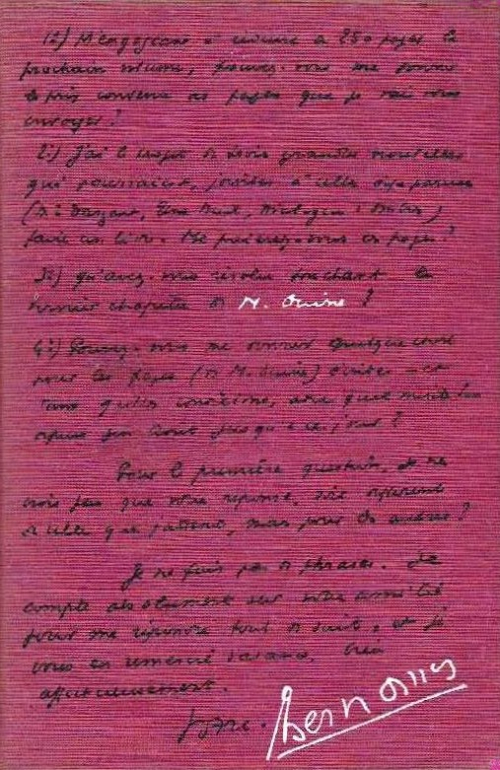 1º) M'engageant à réduire à 250 pages le
prochain volume, pouvez-vous me donner
le prix convenu des pages que je vais vous
envoyer ?
2º) J'ai le sujet de trois grandes nouvelles
qui pourraient, jointes à celles déjà parues
( Dargent, Une Nuit, Dialogue d'Ombres )
faire un livre. Me paieriez-vous ces pages ?
3º) Qu'avez-vous résolu touchant le
dernier chapitre de M. Ouine ?
4º) Pouvez-vous me donner quelque chose
pour les pages (de M. Ouine)
jusqu'à ce jour ?
Pour la première question, je ne
crois pas que votre réponse soit différente
de celle que j'attends, mais pour les autres ?
Je ne fais pas de phrases. Je
compte absolument sur votre amitié
pour me répondre tout de suite, et je
vous en remercie d'avance. Bien
affectueusement.
Bernanos